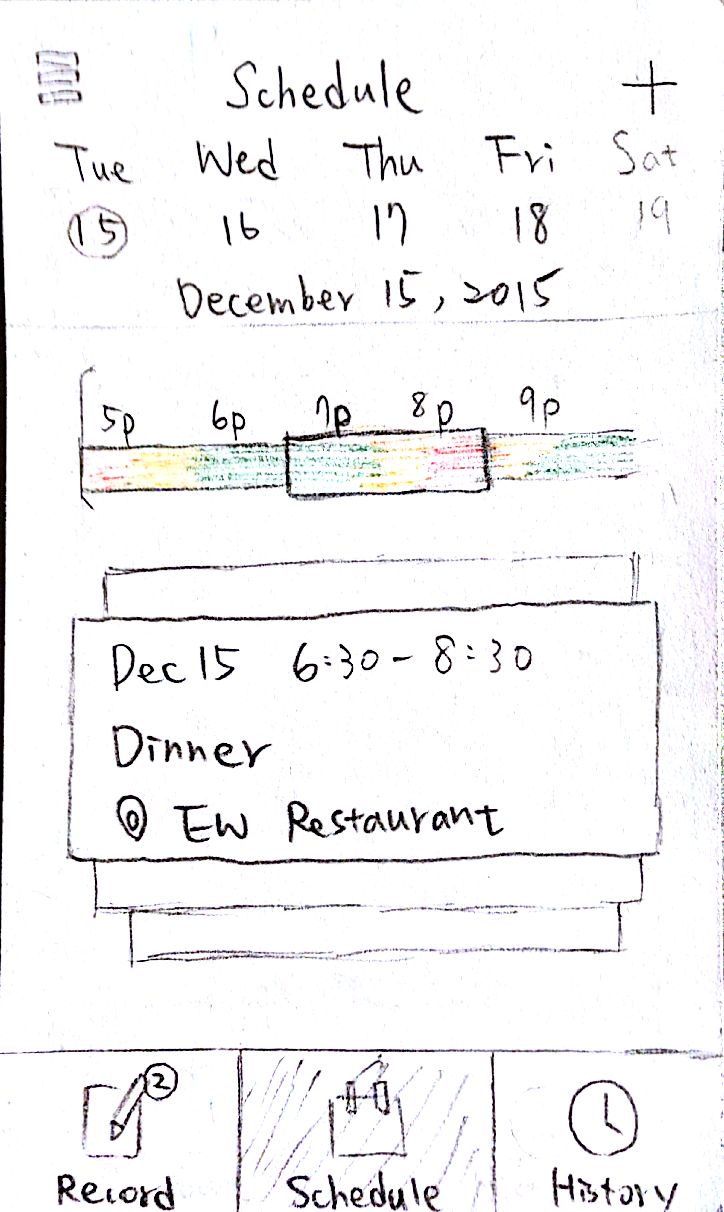 Schedule +
Tue Wed Thu Fri Sat
15 16 17 18 19
December 15, 2015
5p 6p 7p 8p 9p
Dec 15 6:30 - 8:30
Dinner
EW Restaurant
2
Record Schedule History